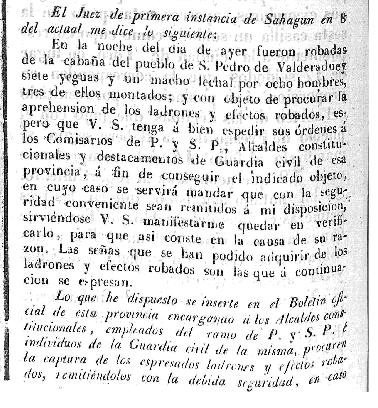 El Juez de primera instancia de Sahagun en 8
del actual me dice lo siguiente:
En la noche del dia de ayer fueron robadas
de la cabaña del pueblo de S. Pedro de Valderaduey
siete yeguas y un macho lechal por ocho hombres,
tres de ellos montados; y con objeto de procurar la
aprehension de los ladrones y efectos robados, es-
pero que V. S. tenga á bien espedir sus órdenes á
los Comisarios de P. y S. P., Alcaldes constitu-
cionales y destacamentos de Guardia civil de esa
provincia, á fin de conseguir el indicado objeto,
en cuyo caso se servirá mandar que con la segu-
ridad conveniente sean remitidos á mi disposicion,
sirviéndose V. S. manifestarme quedar en verifi-
carlo, para que asi conste en la causa de su ra-
zon. Las señas que se han podido adquirir de los
ladrones y efectos robados son las que á continua-
cion se espresan.
Lo que he dispuesto se inserte en el Boletin ofi-
cial de esta provincia encargando á los Alcaldes cons-
titucionales, empleados del ramo de P. y S. P. é
individuos de la Guardia civil de la misma, procuren
la captura de los espresados ladrones y efectos roba-
dos, remitiéndolos con la debida seguridad, en caso